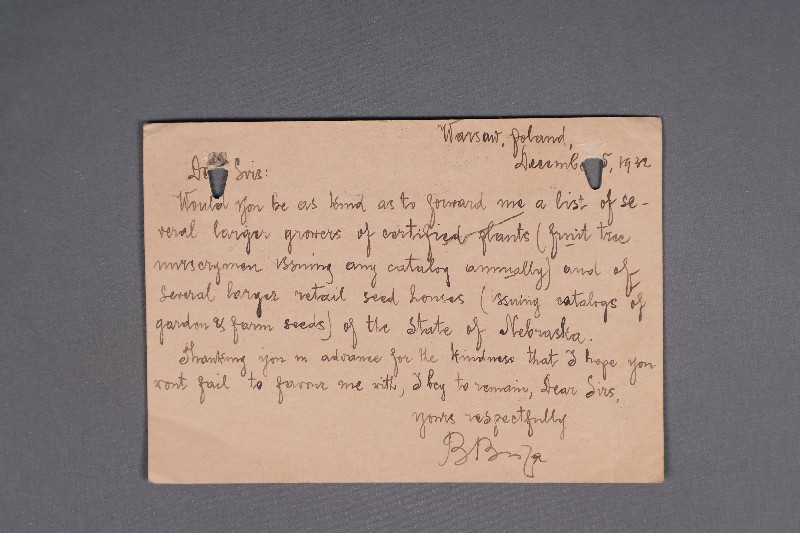 Warsaw, Poland,
December 5, 1932
Dear Sirs:
Would you be as kind as to forward me a list of se-
veral larger growers of certified plants (fruit tree
nurserymen issuing any catalog annually) and of
several larger retail seed houses (issuing catalogs of
garden & farm seeds) of the State of Nebraska.
Thanking you in advance for the kindness that I hope you
wont fail to favour me with, I beg to remain, Dear Sirs,
yours respectfully